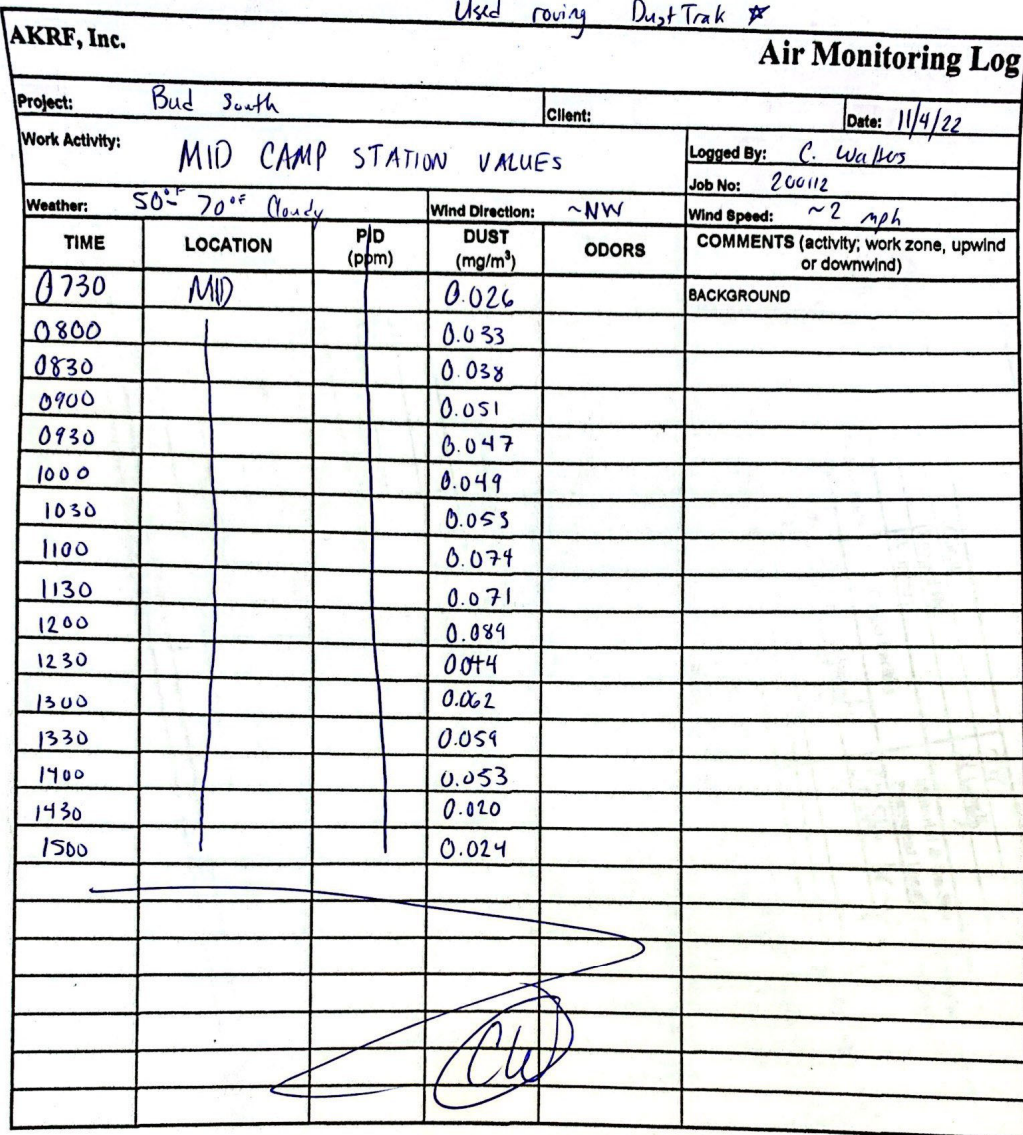 Used roving DustTrak ☆
AKRF, Inc.
Air Monitoring Log
Project: Bud South Client: Date: 11/4/22
Work Activity: MID CAMP STATION VALUES Logged By: C. Walters
Job No: 200112
Weather: 50°F- 70°F Cloudy Wind Direction: ~NW Wind Speed: ~2 mph
TIME LOCATION PID (ppm) DUST (mg/m³) ODORS COMMENTS (activity; work zone, upwind or downwind)
0730 MID 0.026 BACKGROUND
0800 0.033
0830 0.038
0900 0.051
0930 0.047
1000 0.049
1030 0.053
1100 0.074
1130 0.071
1200 0.089
1230 0.044
1300 0.062
1330 0.059
1400 0.053
1430 0.020
1500 0.024
CW